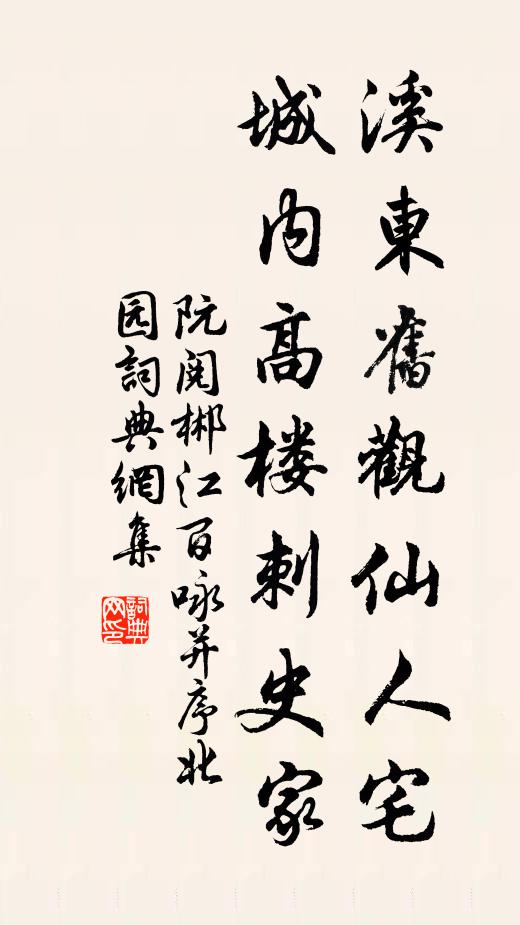 溪東舊觀仙人宅
城内高楼刺史家
阮閱郴江百咏并序北
园詞典網集
詞典
网印